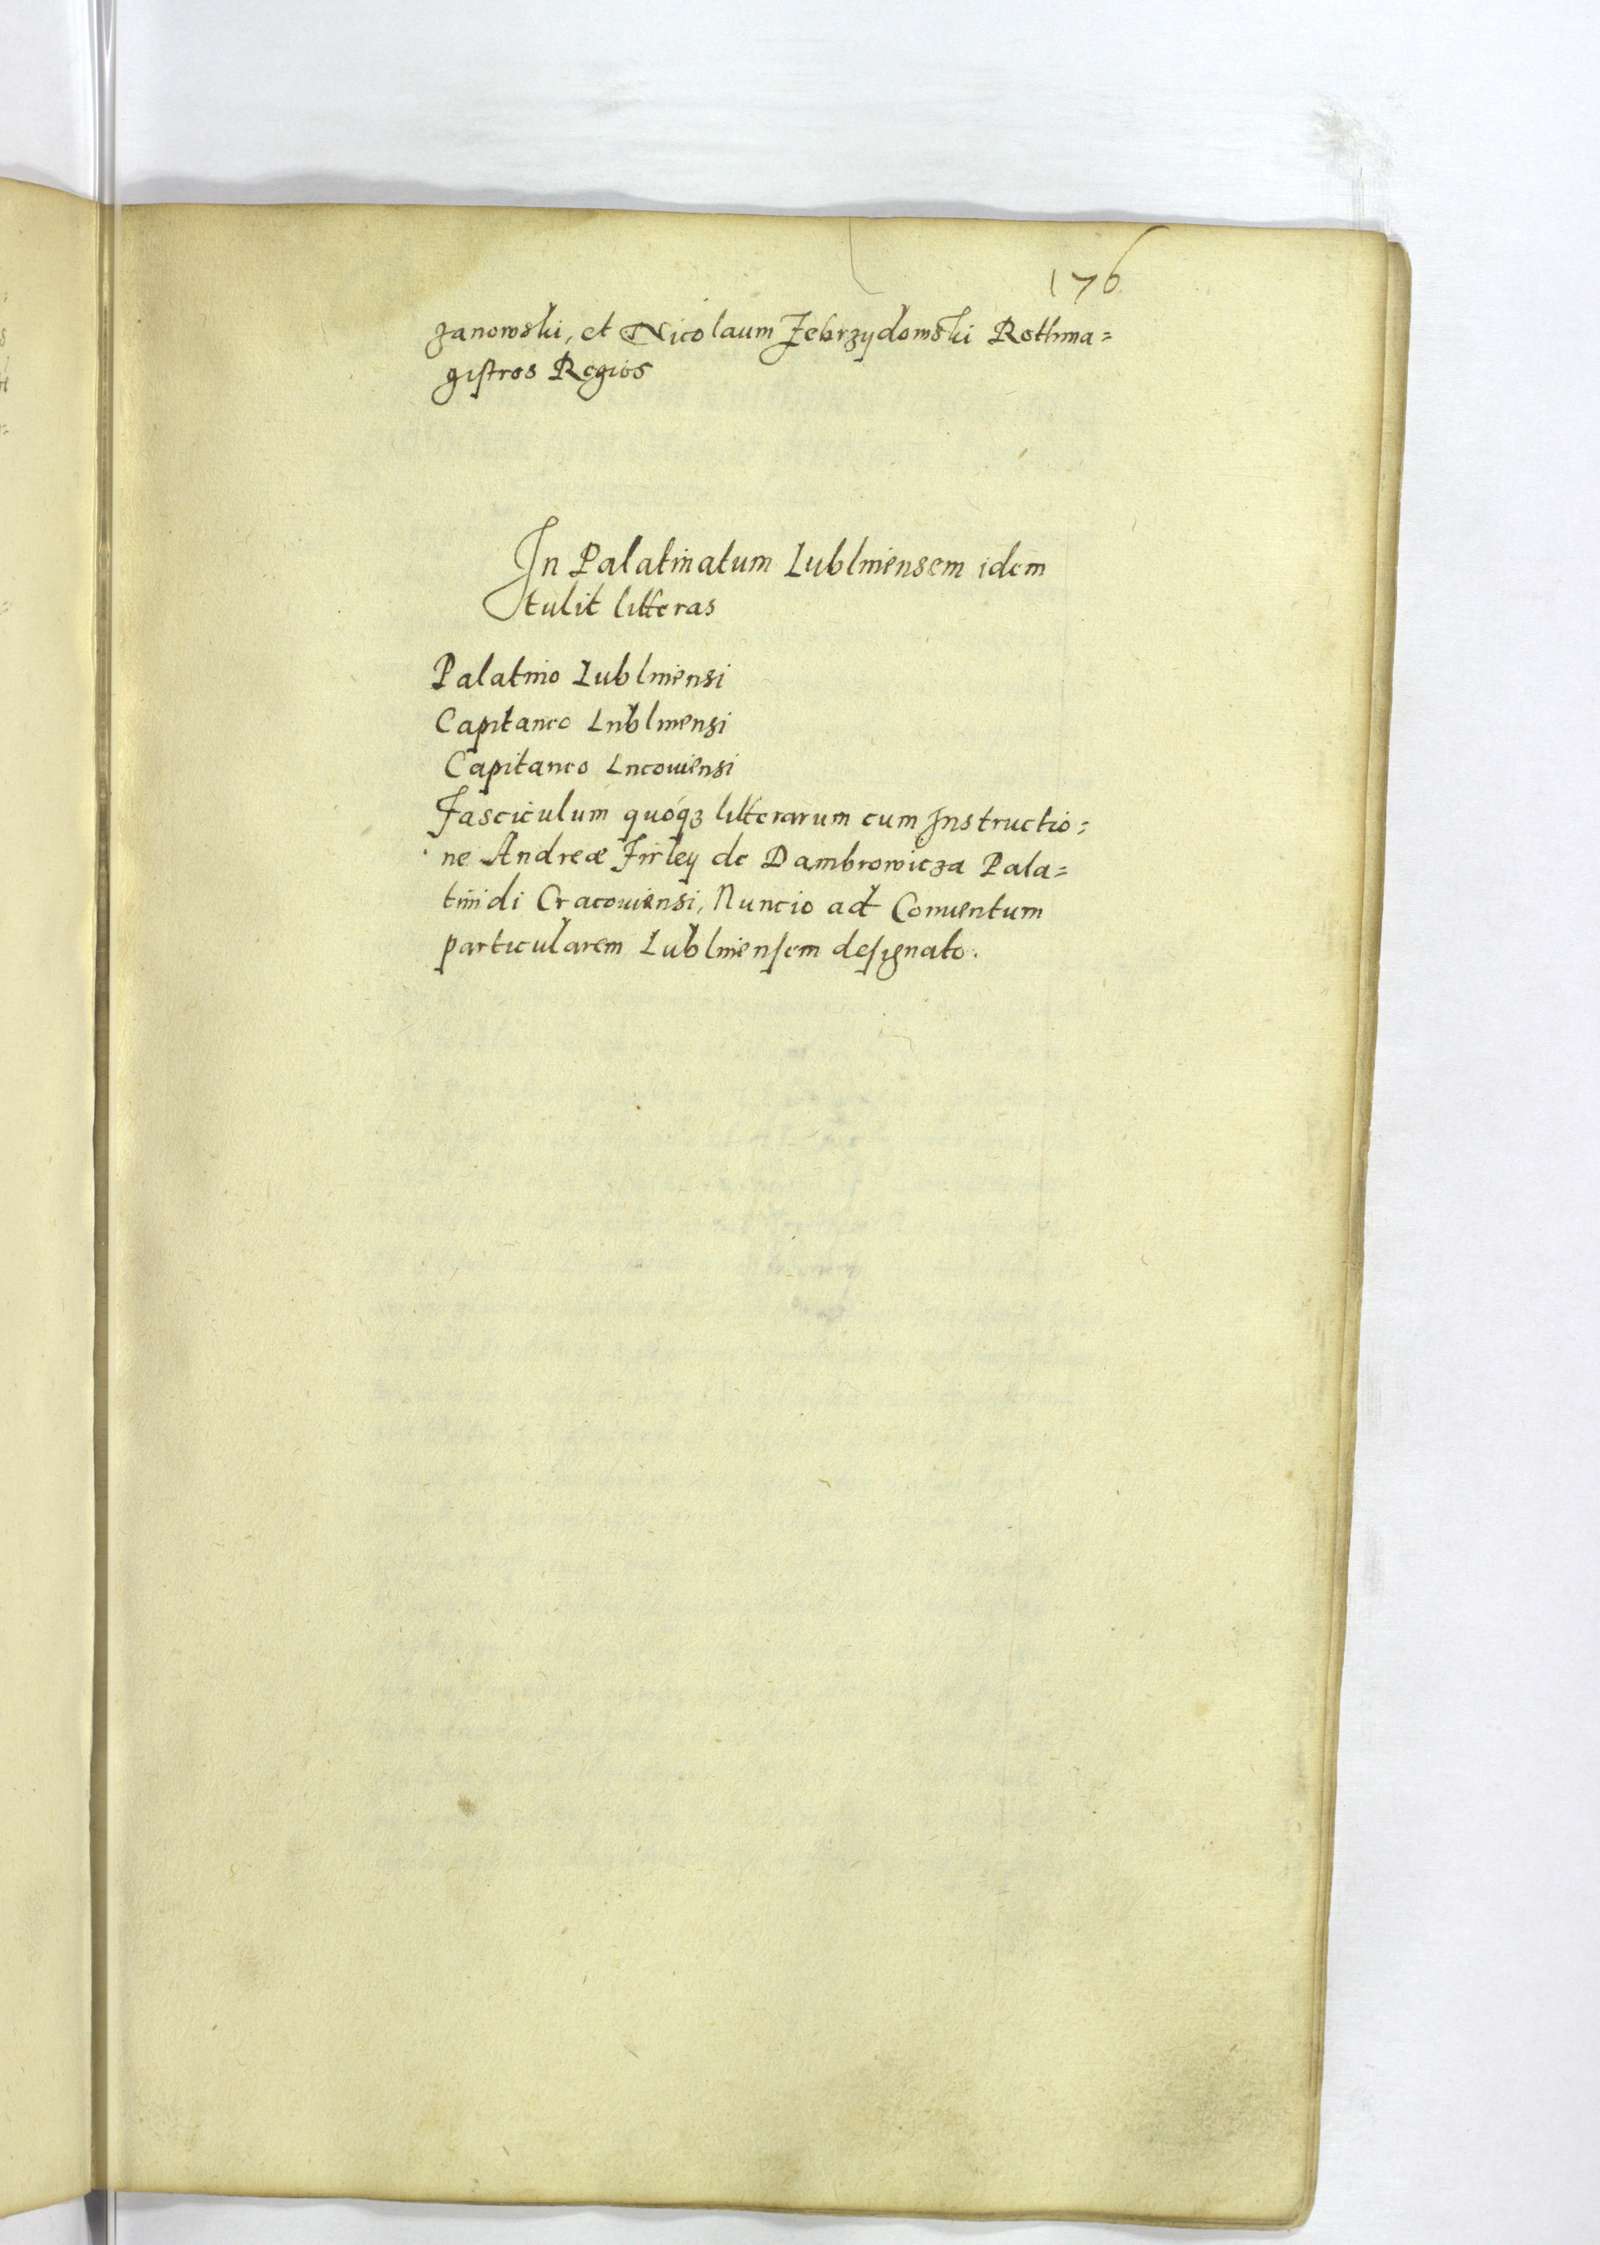 176
zanowski, et Nicolaum Zebrzydowski Rothma=
gistros Regios
In Palatinatum Lublinensem idem
tulit litteras
Palatino Lublinensi
Capitaneo Lublinensi
Capitaneo Lucoviensi
Fasciculum quóqꝫ litterarum cum Instructio=
ne Andreæ Firley de Dambrowicza Pala=
tinidi Cracouiensi, Nuncio ad Conuentum
particularem Lublinensem designato.